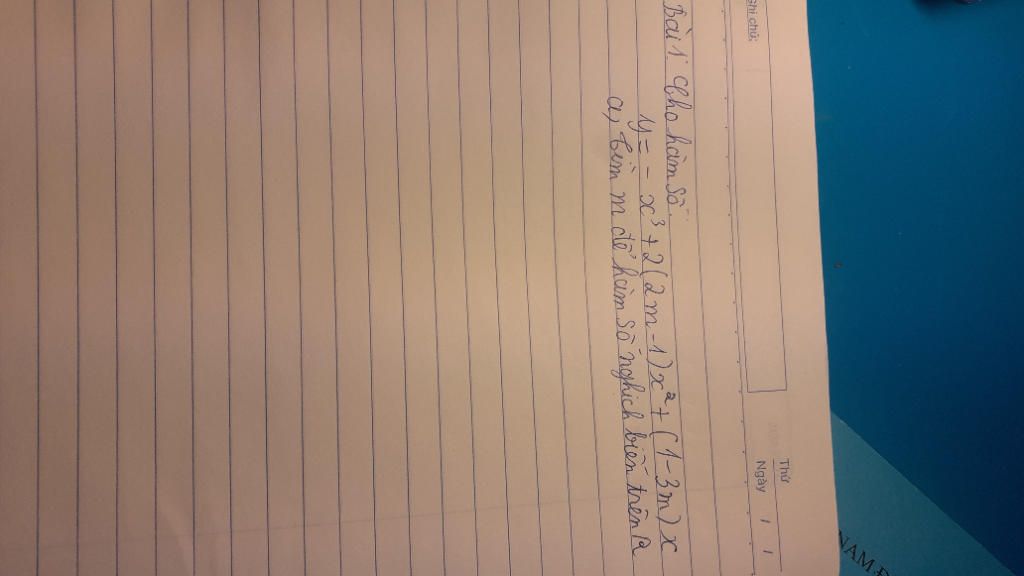 Ghi chú:
Thứ
Ngày / /
Bài 1: Cho hàm số.
y = - x³ + 2(2m - 1)x² + (1 - 3m)x
a, tìm m để hàm số nghịch biến trên R
NAM Đ